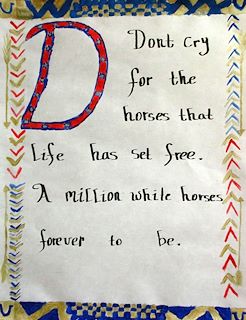 D
Dont cry
for the
horses that
life has set free.
A million while horses
forever to be.